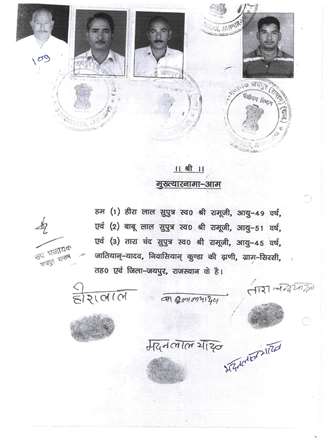 109
।। श्री ।।
मुख्त्यारनामा-आम
हम (1) हीरा लाल सुपुत्र स्व0 श्री रामूजी, आयु-49 वर्ष,
एवं (2) बाबू लाल सुपुत्र स्व0 श्री रामूजी, आयु-51 वर्ष,
एवं (3) तारा चंद सुपुत्र स्व0 श्री रामूजी, आयु-45 वर्ष,
जातियान-यादव, निवासियान कुण्डा की ढाणी, ग्राम-सिरसी,
तह0 एवं जिला-जयपुर, राजस्थान के है।
हीरालाल
बाबूलाल यादव
मदनलाल यादव
मदनलाल यादव